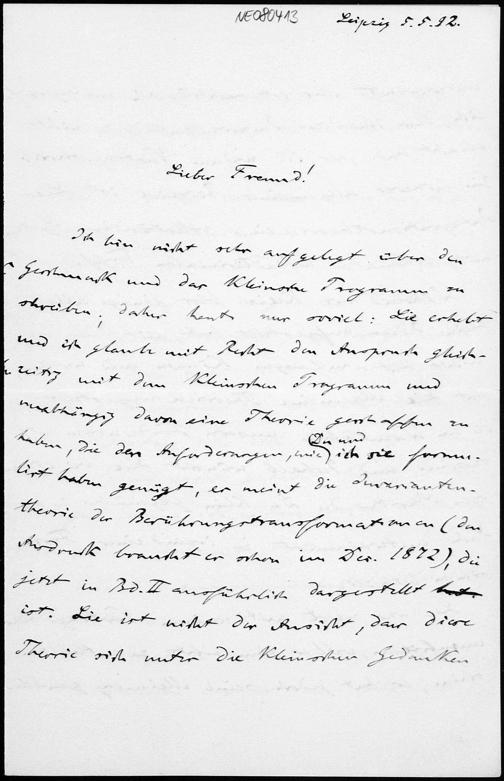 NE080413
Leipzig 5.5.92.
Lieber Freund!
Ich bin nicht sehr aufgelegt über den
Geschmack und das Kleinsche Programm zu
schreiben; daher heut nur soviel: Lie erhebt
und ich glaube mit Recht den Anspruch gleich-
zeitig mit dem Kleinschen Programm und
unabhängig davon eine Theorie geschaffen zu
haben, die den Anforderungen, wie Du und ich sie formu-
lirt haben genügt, er meint die Invarianten-
theorie der Berührungstransformationen (den
Ausdruck braucht er schon im Dec. 1872), die
jetzt in Bd. II ausführlich dargestellt
ist. Lie ist nicht der Ansicht, dass diese
Theorie sich unter die Kleinschen Gedanken